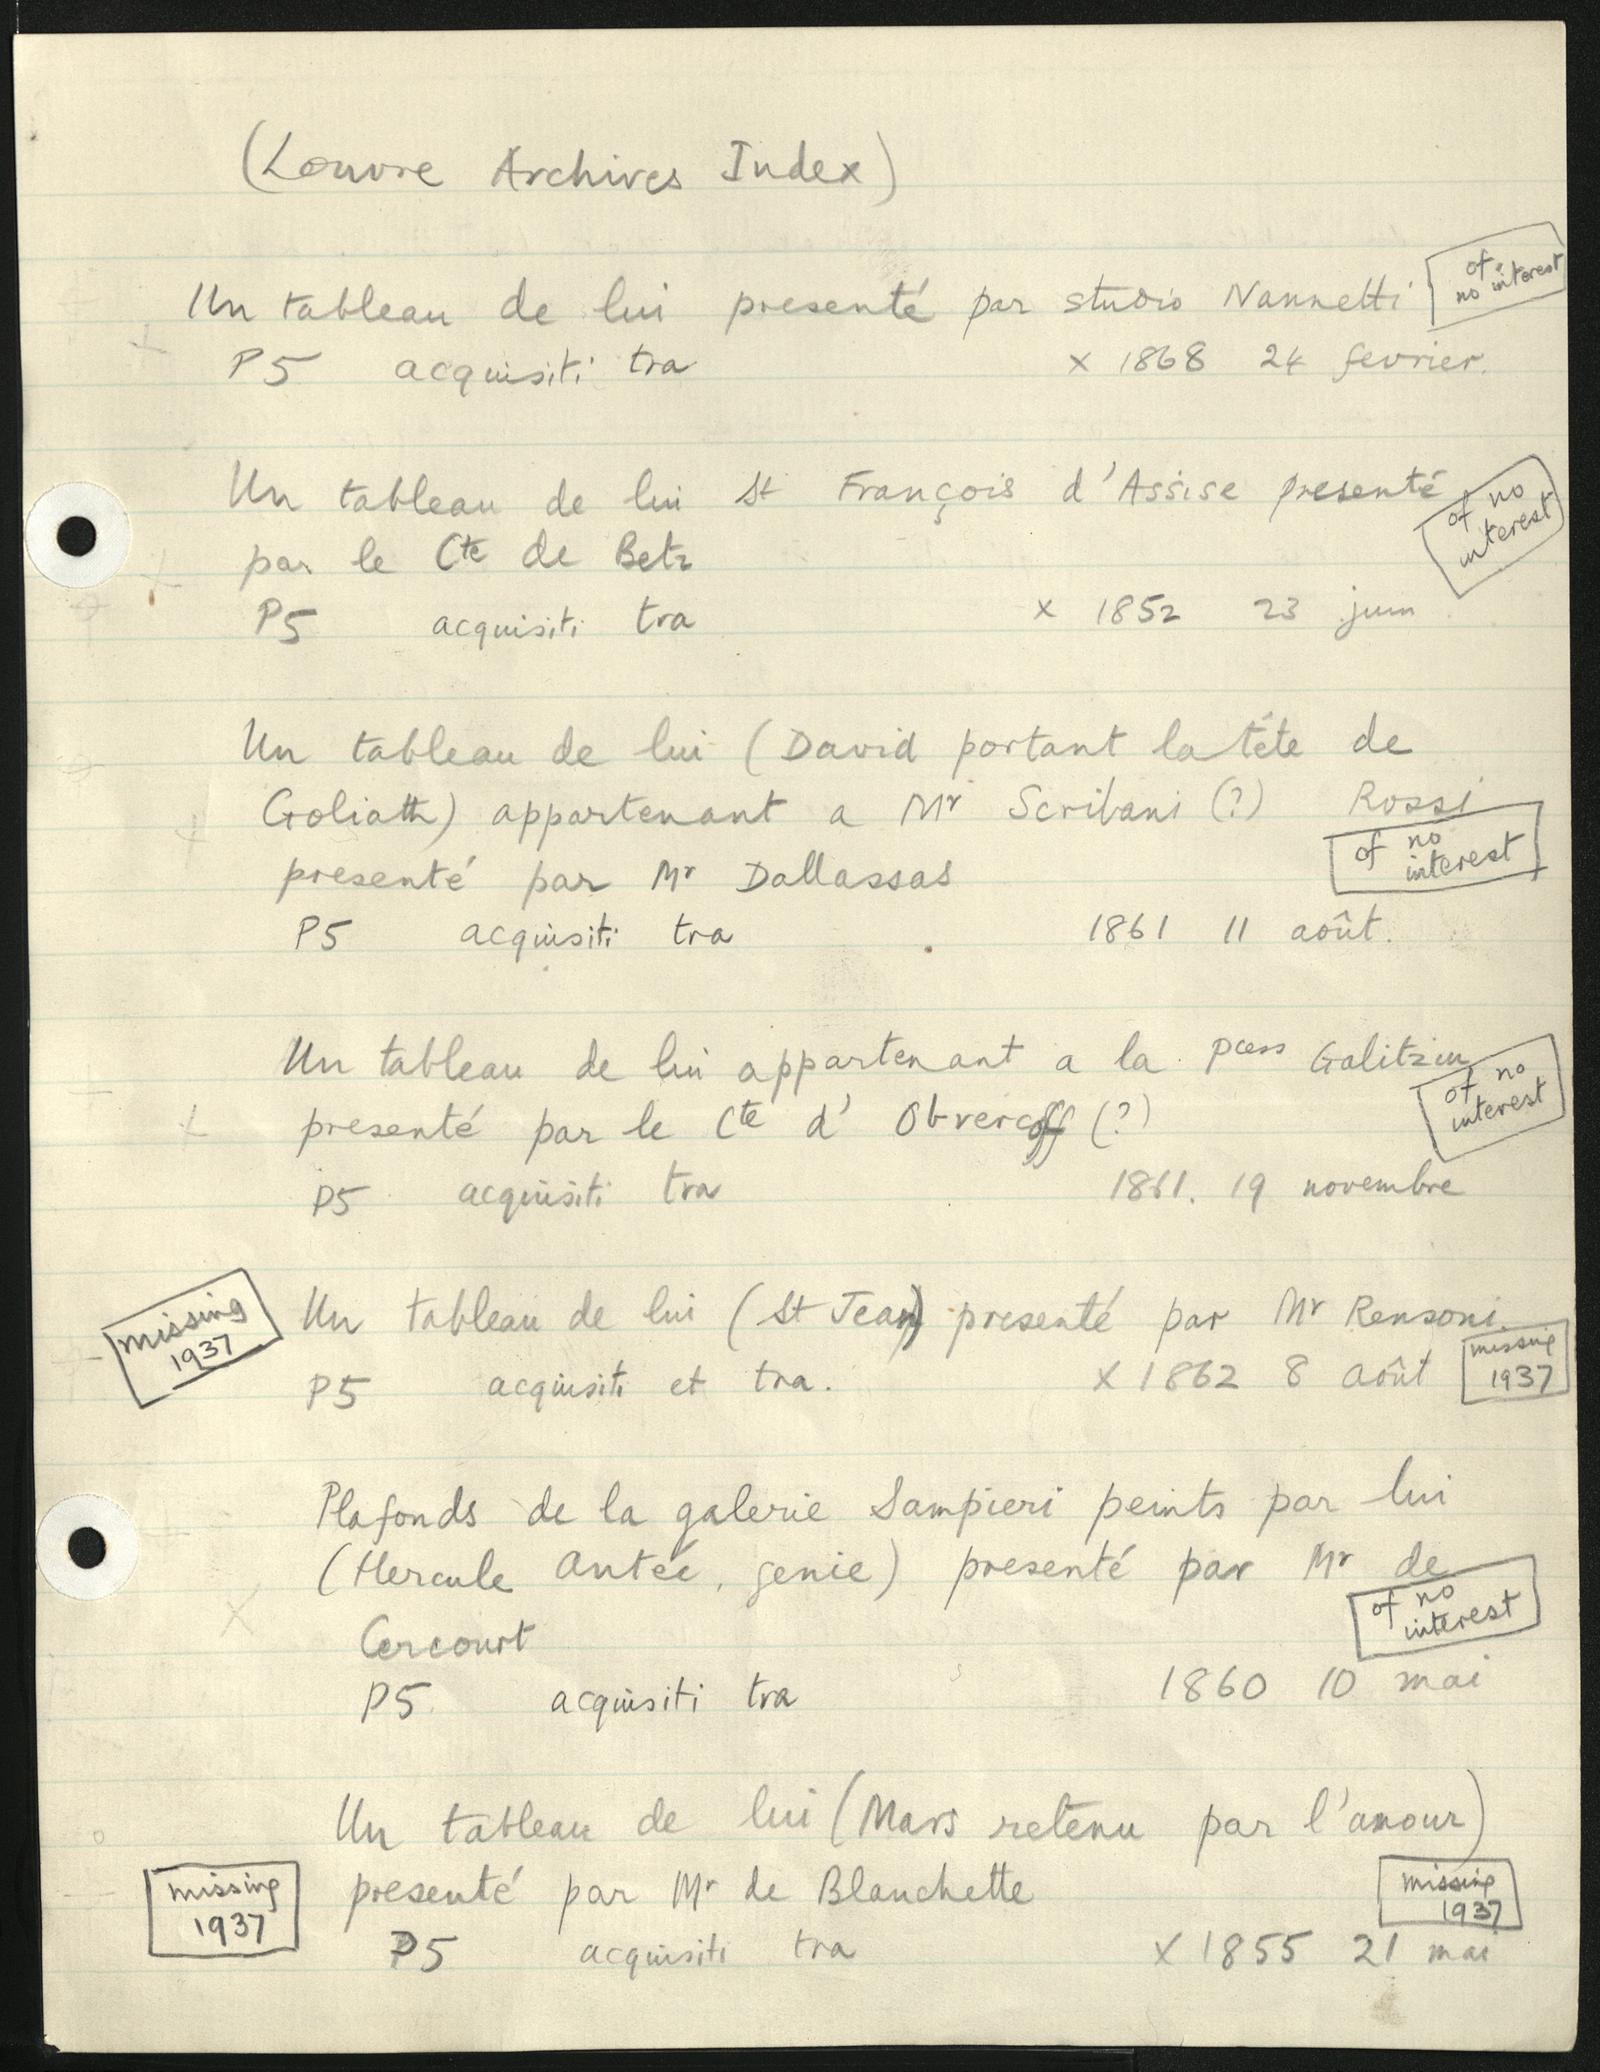 (Louvre Archives Index)
Un tableau de lui presenté par studio Nannetti
of no interest
P5 acquisiti tra x 1868 24 fevrier.
Un tableau de lui St François d'Assise presenté
of no interest
par le Cte de Betz
P5 acquisiti tra x 1852 23 juin
Un tableau de lui (David portant la tête de
Goliath) appartenant a Mr Scribani (?) Rossi
of no interest
presenté par Mr Dallassas
P5 acquisiti tra 1861 11 août.
Un tableau de lui appartenant a la Pcess Galitzin
of no interest
presenté par le Cte d' Obvercoff (?)
P5 acquisiti tra 1861. 19 novembre
missing 1937
Un tableau de lui (St Jean) presenté par Mr Rensoni.
P5 acquisiti et tra. x 1862 8 août
missing 1937
Plafonds de la galerie Sampieri peints par lui
(Hercule Antée, genie) presenté par Mr de
of no interest
Cercourt
P5 acquisiti tra 1860 10 mai
Un tableau de lui (Mars retenu par l'amour)
missing 1937
presenté par Mr de Blanchette
missing 1937
P5 acquisiti tra x 1855 21 mai